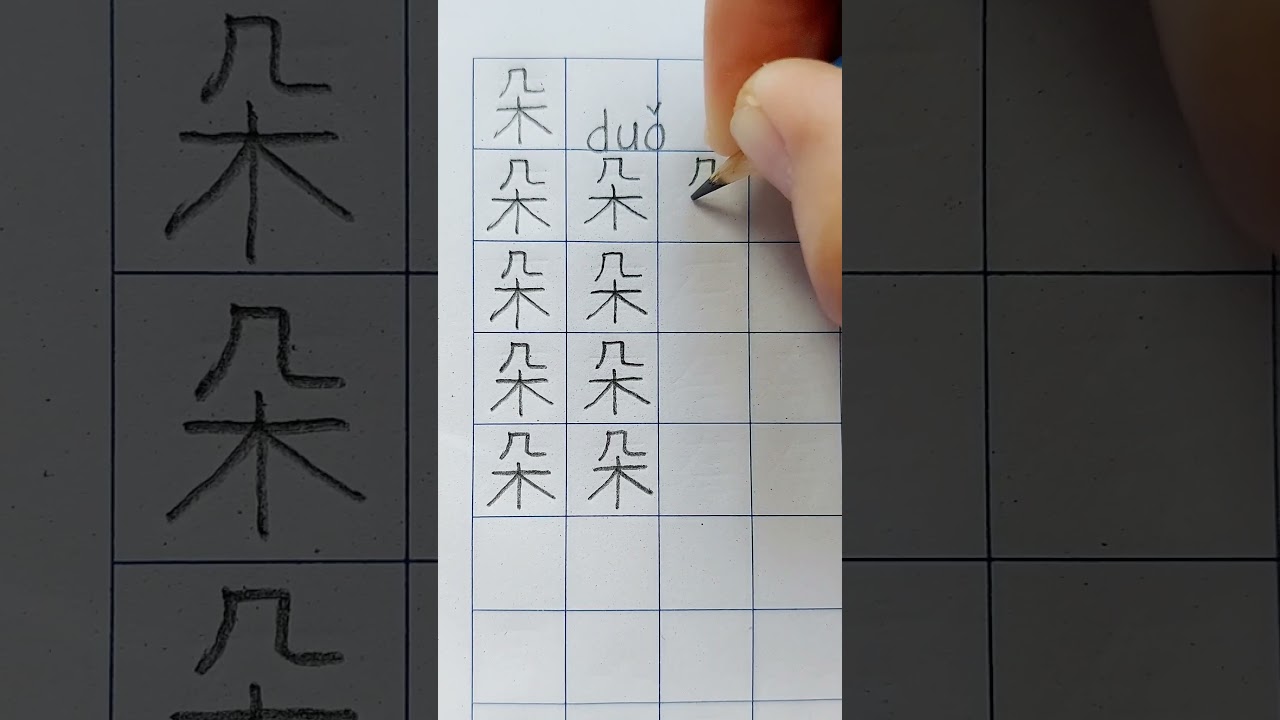 朵 duǒ
朵 朵
朵 朵
朵 朵
朵 朵